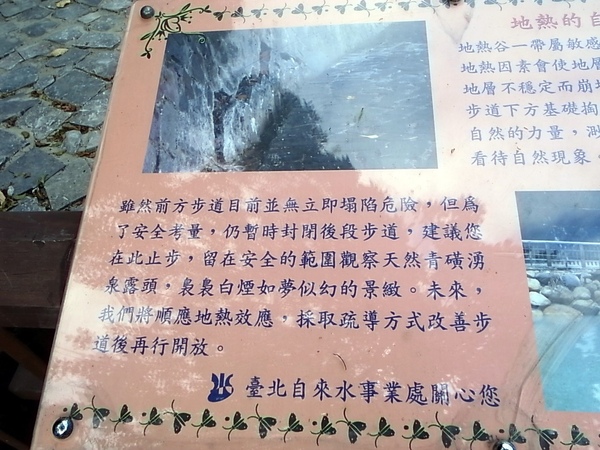 雖然前方步道目前並無立即塌陷危險，但為
了安全考量，仍暫時封閉後段步道，建議您
在此止步，留在安全的範圍觀察天然青磺湧
泉露頭，裊裊白煙如夢似幻的景緻。未來，
我們將順應地熱效應，採取疏導方式改善步
道後再行開放。
臺北自來水事業處關心您
地熱的自
地熱谷一帶屬敏感
地熱因素會使地層
地層不穩定而崩塌
步道下方基礎掏
自然的力量，測
看待自然現象。